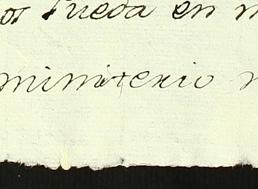 os Rueda en m
ministerio n